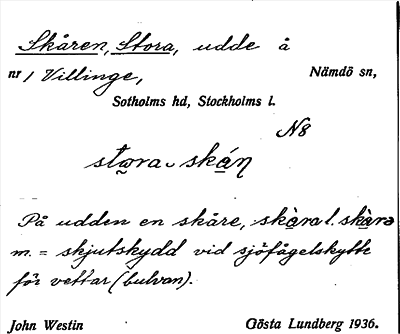 Skåren, Stora, udde å
nr 1 Villinge, Nämdö sn,
Sotholms hd, Stockholms l.
N8
stora skán
På udden en skåre, skàra l. skàra
m. = skjutskydd vid sjöfågelskytte
för vettar (bulvan).
John Westin Gösta Lundberg 1936.